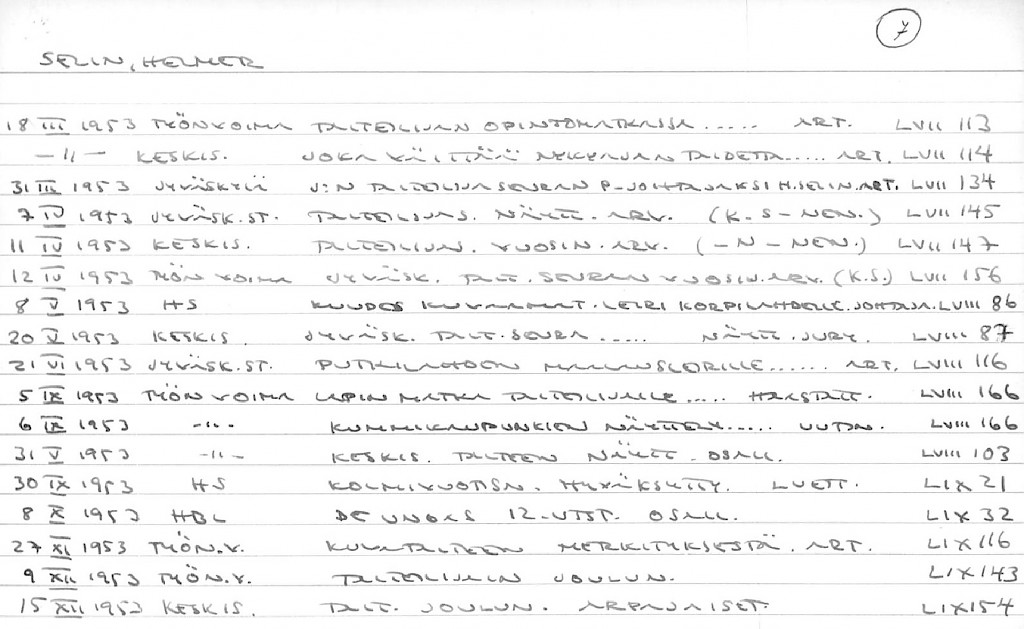 7
SELIN, HELMER
18 III 1953 TYÖNVOIMA TAITEILIJAN OPINTOMATKASSA ..... ART. LVII 113
-"- KESKIS. JOKA VÄLTTÄÄ NYKYAJAN TAIDETTA ..... ART. LVII 114
31 III 1953 JYVÄSKYLÄ J:N TAITEILIJASEURAN P-JOHTAJAKSI H.SELIN. ART. LVII 134
7 IV 1953 JYVÄSK.ST. TAITEILIJAS. NÄYTT. ARV. (K.S-NEN.) LVII 145
11 IV 1953 KESKIS. TAITEILIJAN. VUOSIN. ARV. (-N-NEN.) LVII 147
12 IV 1953 TYÖN VOIMA JYVÄSK. TAIT. SEURAN VUOSIN. ARV. (K.S.) LVII 156
8 V 1953 HS KUUDES KUVAAMAT. LEIRI KORPILAHDELLE. JOHTAJA. LVIII 86
20 V 1953 KESKIS. JYVÄSK. TAIT. SEURA ..... NÄYTT. JURY. LVIII 87
21 VI 1953 JYVÄSK.ST. PUTKILAHDEN MAALAUSLEIRILLE ...... ART. LVIII 116
5 IX 1953 TYÖN VOIMA LAPIN MATKA TAITEILIJALLE ..... HAASTATT. LVIII 166
6 IX 1953 -"- KUMMIKAUPUNKIEN NÄYTTELY ..... UUTIN. LVIII 166
31 V 1953 -"- KESKIS. TAITEEN NÄYTT. OSALL. LVIII 103
30 IX 1953 HS KOLMIVUOTISN. HYVÄKSYTTY. LUETT. LIX 21
8 X 1953 HBL DE UNGAS 12-UTST. OSALL. LIX 32
27 XI 1953 TYÖN.V. KUVATAITEEN MERKITYKSESTÄ. ART. LIX 116
9 XII 1953 TYÖN.V. TAITEILIJAIN JOULUN. LIX 143
15 XII 1953 KESKIS. TAIT. JOULUN. ARPAJAISET. LIX 154